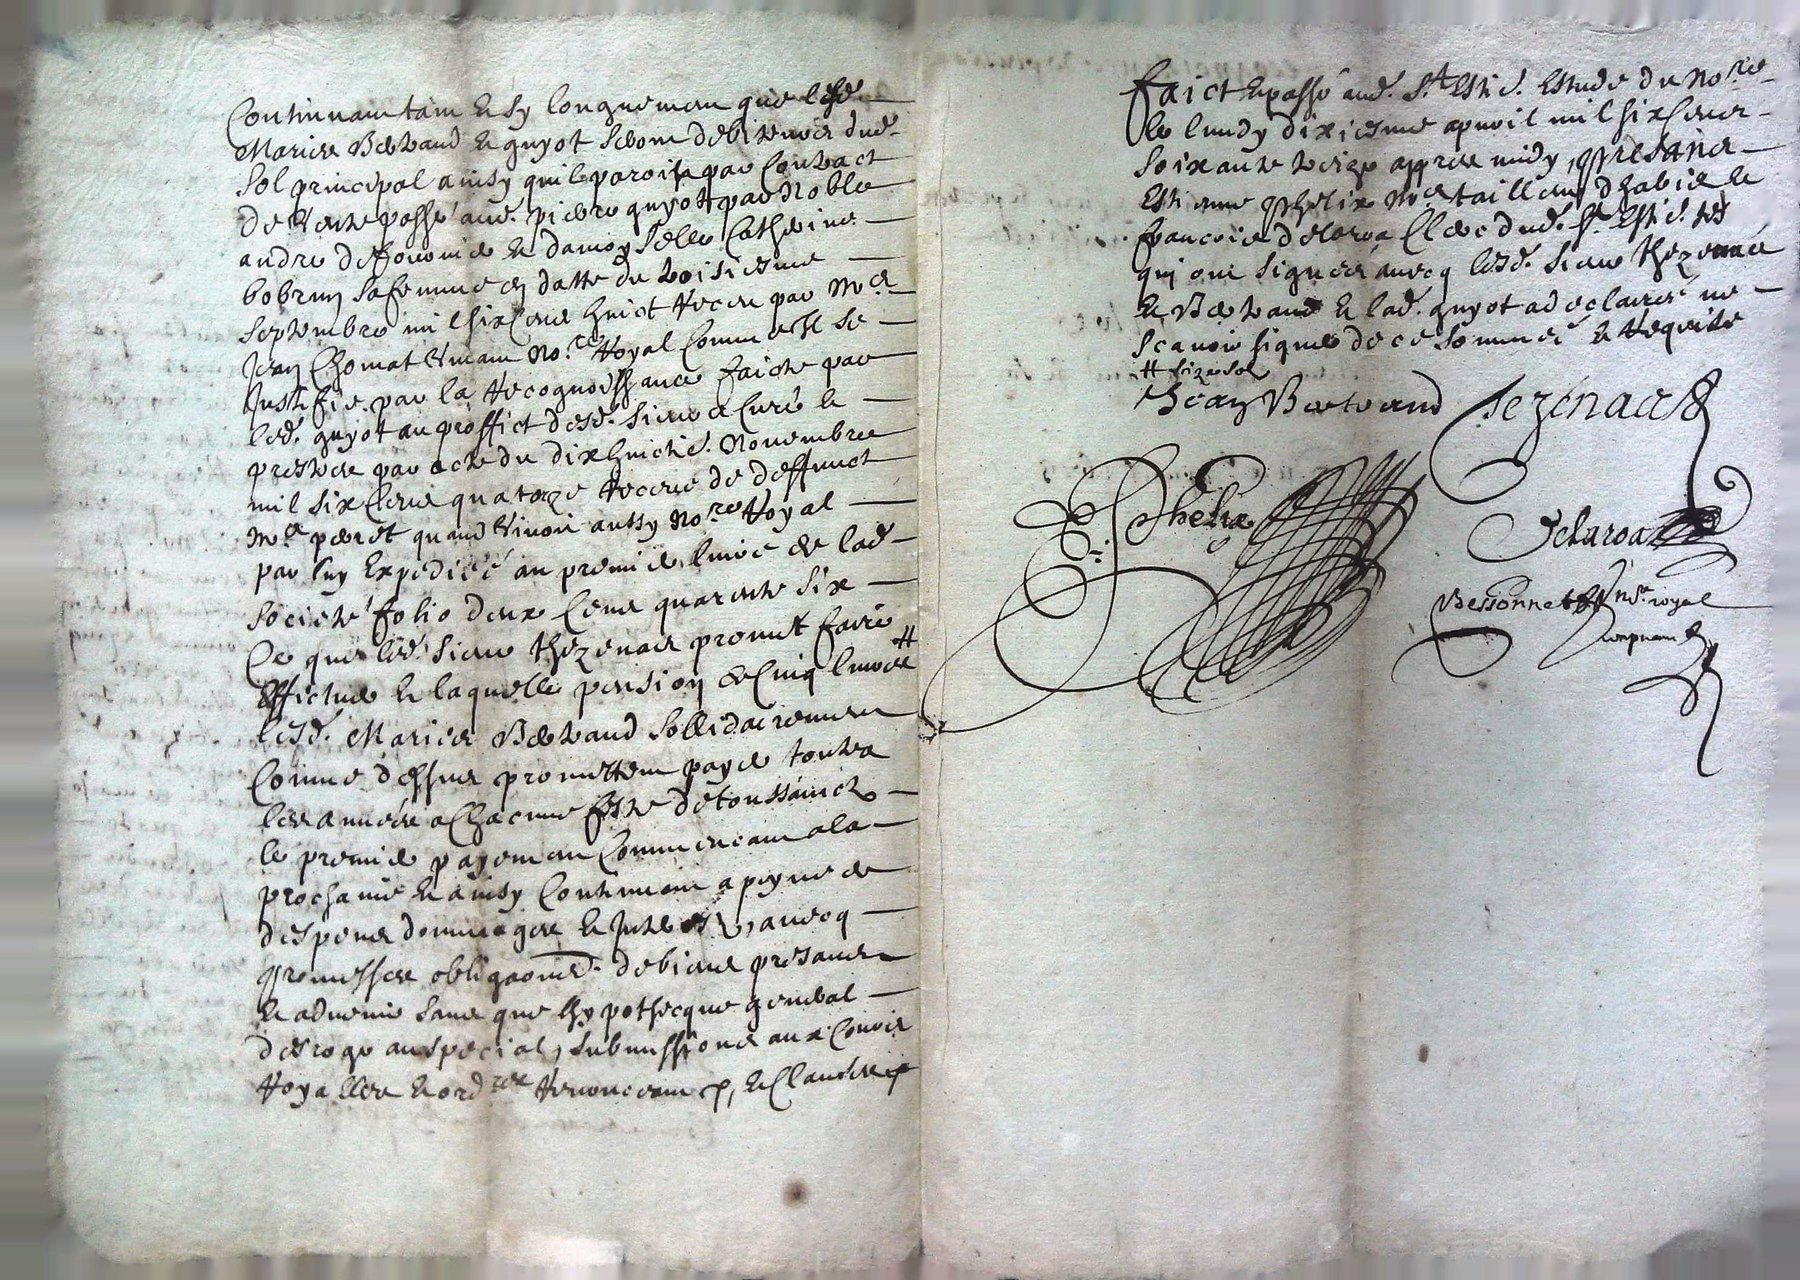 Continuant tant & sy longuement que lesd.
Maries Bertrand & guyot seront debiteurs dud.
sol principal ainsy quil paroist par Contract
de vente passé aud. pierre guyot par Noble
andre & damoyselle Catherine
sa femme en datte du troisiesme
septembre mil six Cens huict Receu par Me
Jean Chomat No.re Royal Comme Il se
Justifie par la Recognoissance faicte par
led. guyot au proffict desd. sieurs Curé &
prestres par acte du dix huictie. Novembre
mil six Cens quatorze Receue de deffunct
Me aussy No.re Royal
par luy Expediée au premier livre de lad.
societé folio deux Cens quarente six
Ce que led. sieur thezenas promet faire
Effectuer & laquelle pension de Cinq livres #
lesd. Maries Bertrand sollidairement
Comme dessus promettent payer toutes
les années a Chacune feste de toussaincts
le premier payement Commencant a la
prochaine & ainsy Continuer a peyne de
despens dommages & Interests, avecq
promesses obligaons. de biens presants
& advenir sans que lhypothecque general
desroge au special, submissions aux Cours
Royalles & ordres Renonceant p, & Clauses
faict & passé aud. St Esti. Estude du No.re
le lundy dixiesme apvril mil six Cens
soixante treize appres midy, presants
Estienne phelix Me tailleur dhabis &
francois delaroa Clerc dud. St Esti. tes
qui ont signés avecq lesd. sieur thezenas
& Bertrand & lad. guyot a declairé ne
scavoir signer de ce sommeé & Requise
# seize sols
Jean Bertrand Tezenas
E. Phelix
Delaroa
Bessonnet nore. royal